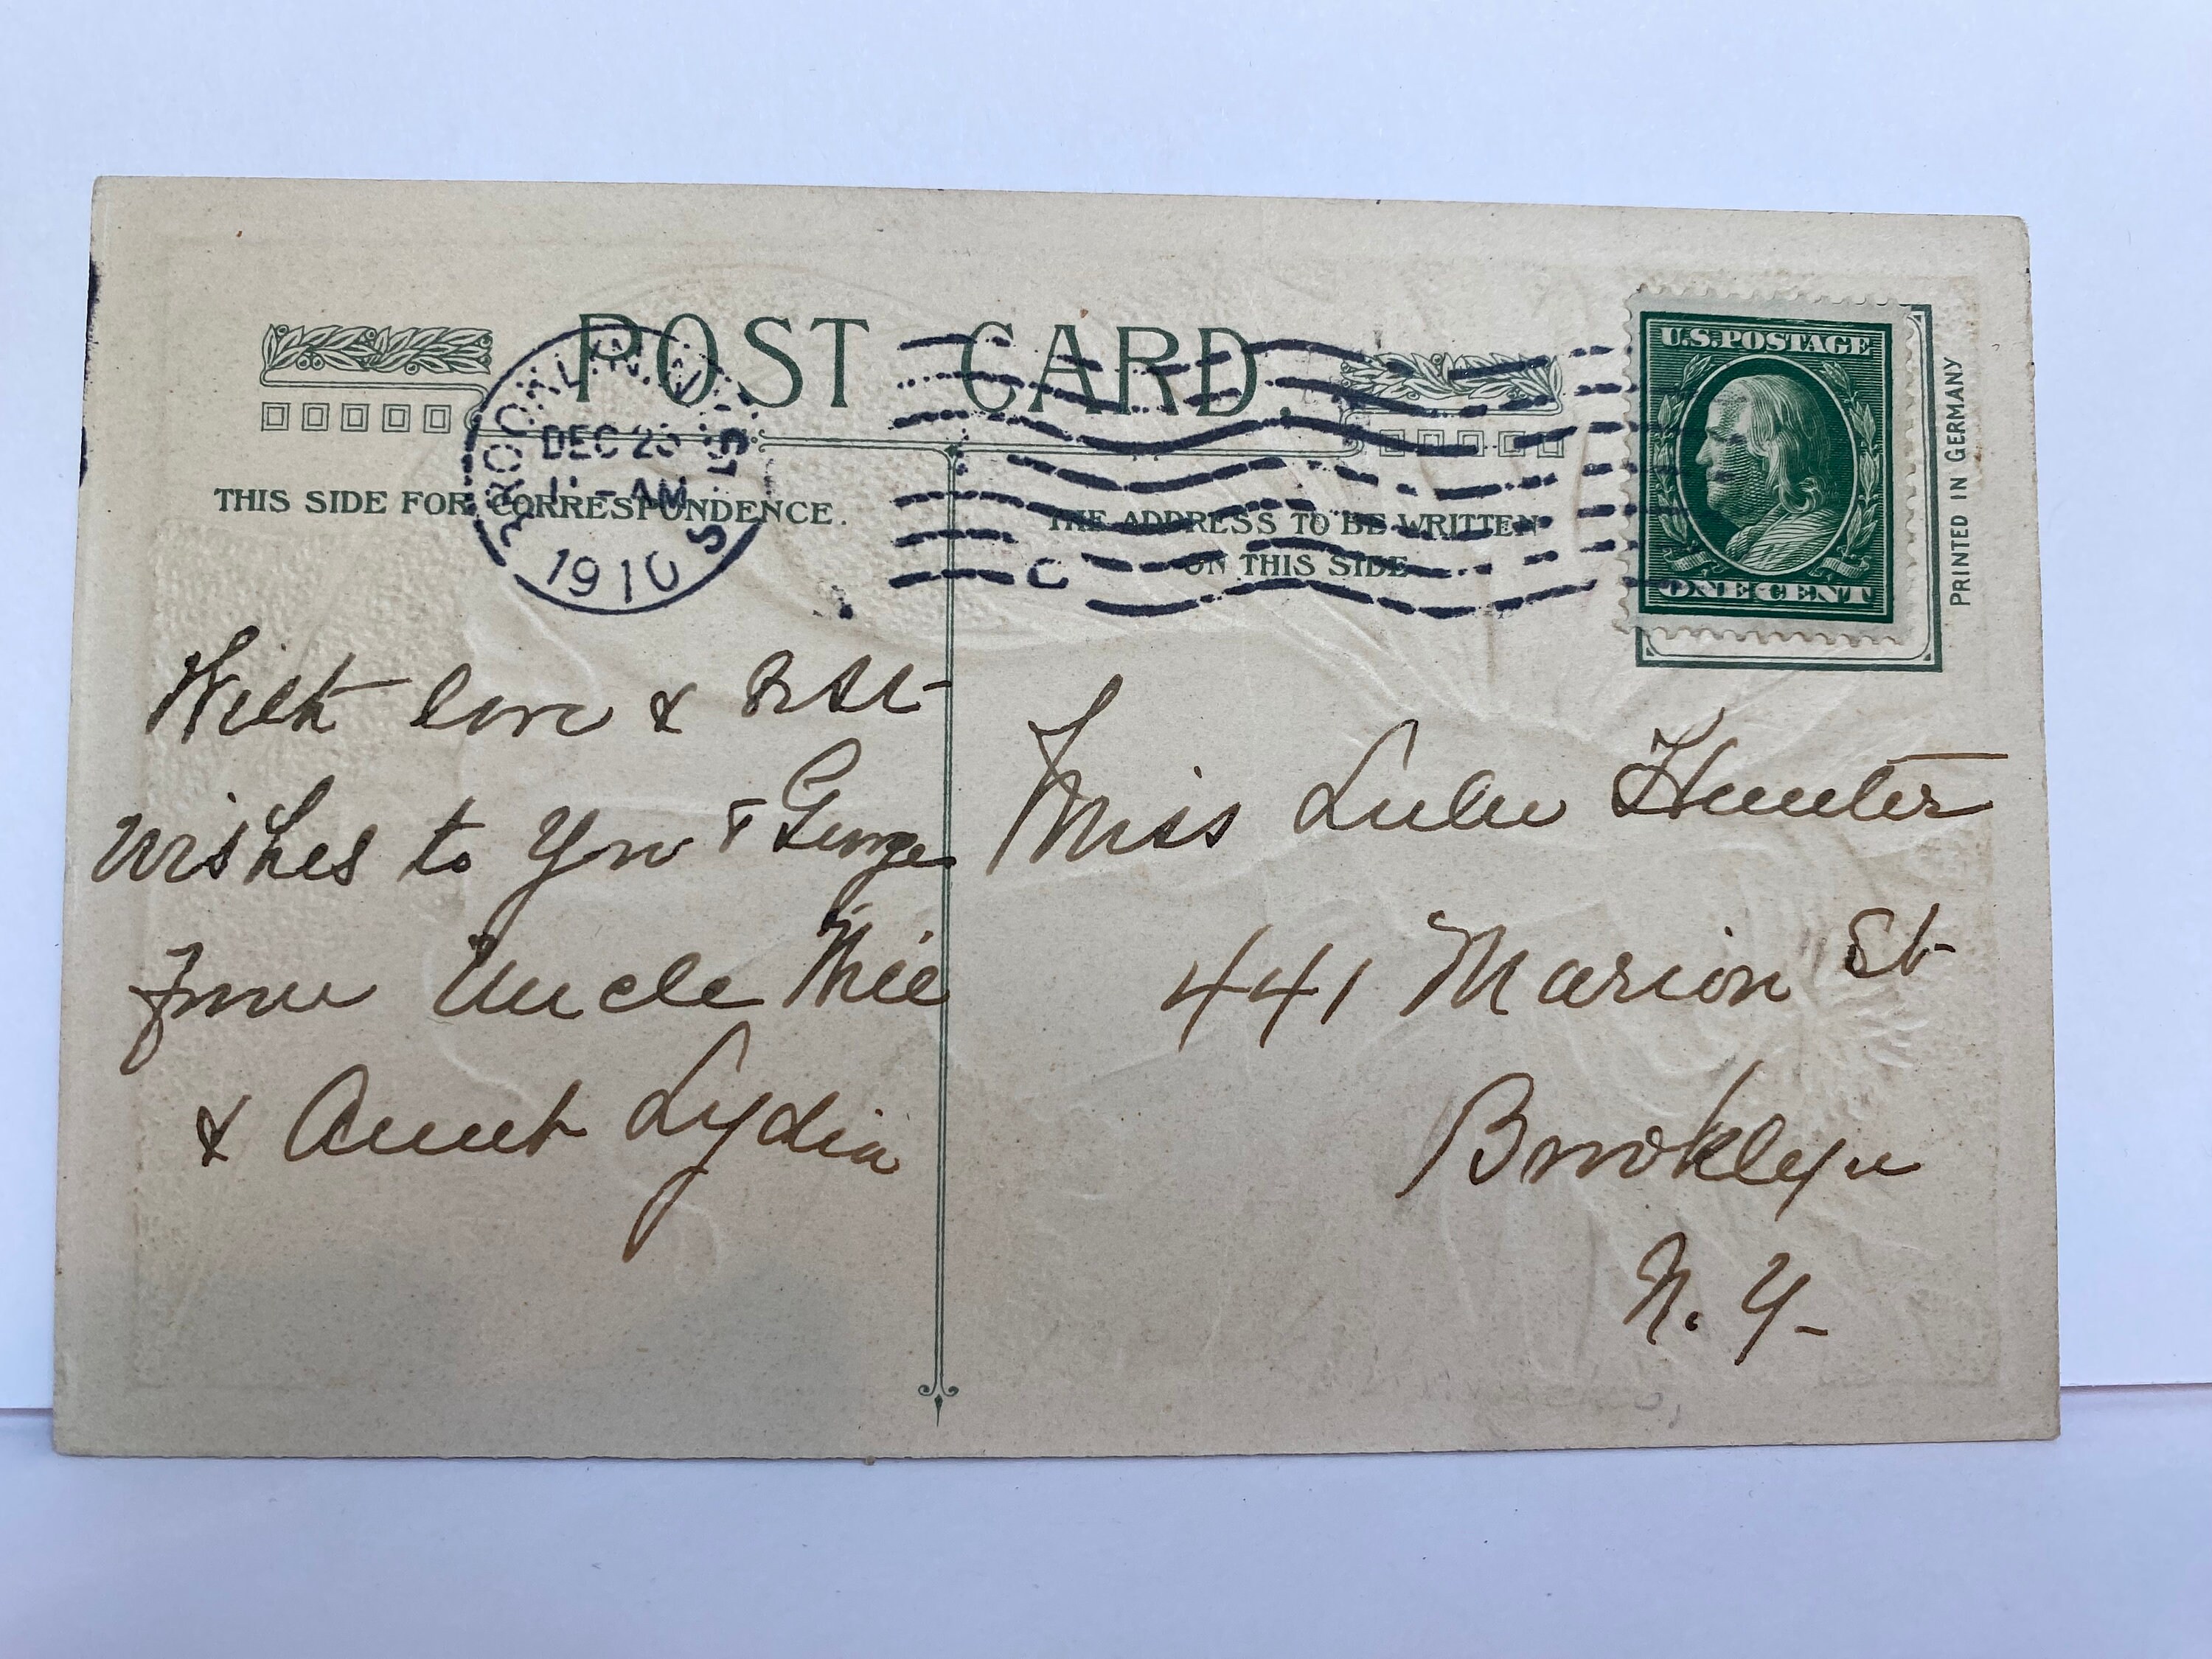 POST CARD.
BROOKLYN, N.Y.
DEC 2
AM
1910
THIS SIDE FOR CORRESPONDENCE.
THE ADDRESS TO BE WRITTEN
ON THIS SIDE
U.S. POSTAGE
ONE CENT
PRINTED IN GERMANY
With love & Best
Wishes to You & George
From Uncle
& Aunt Lydia
Miss Lulu Hunter
441 Marion St
Brooklyn
N. Y.